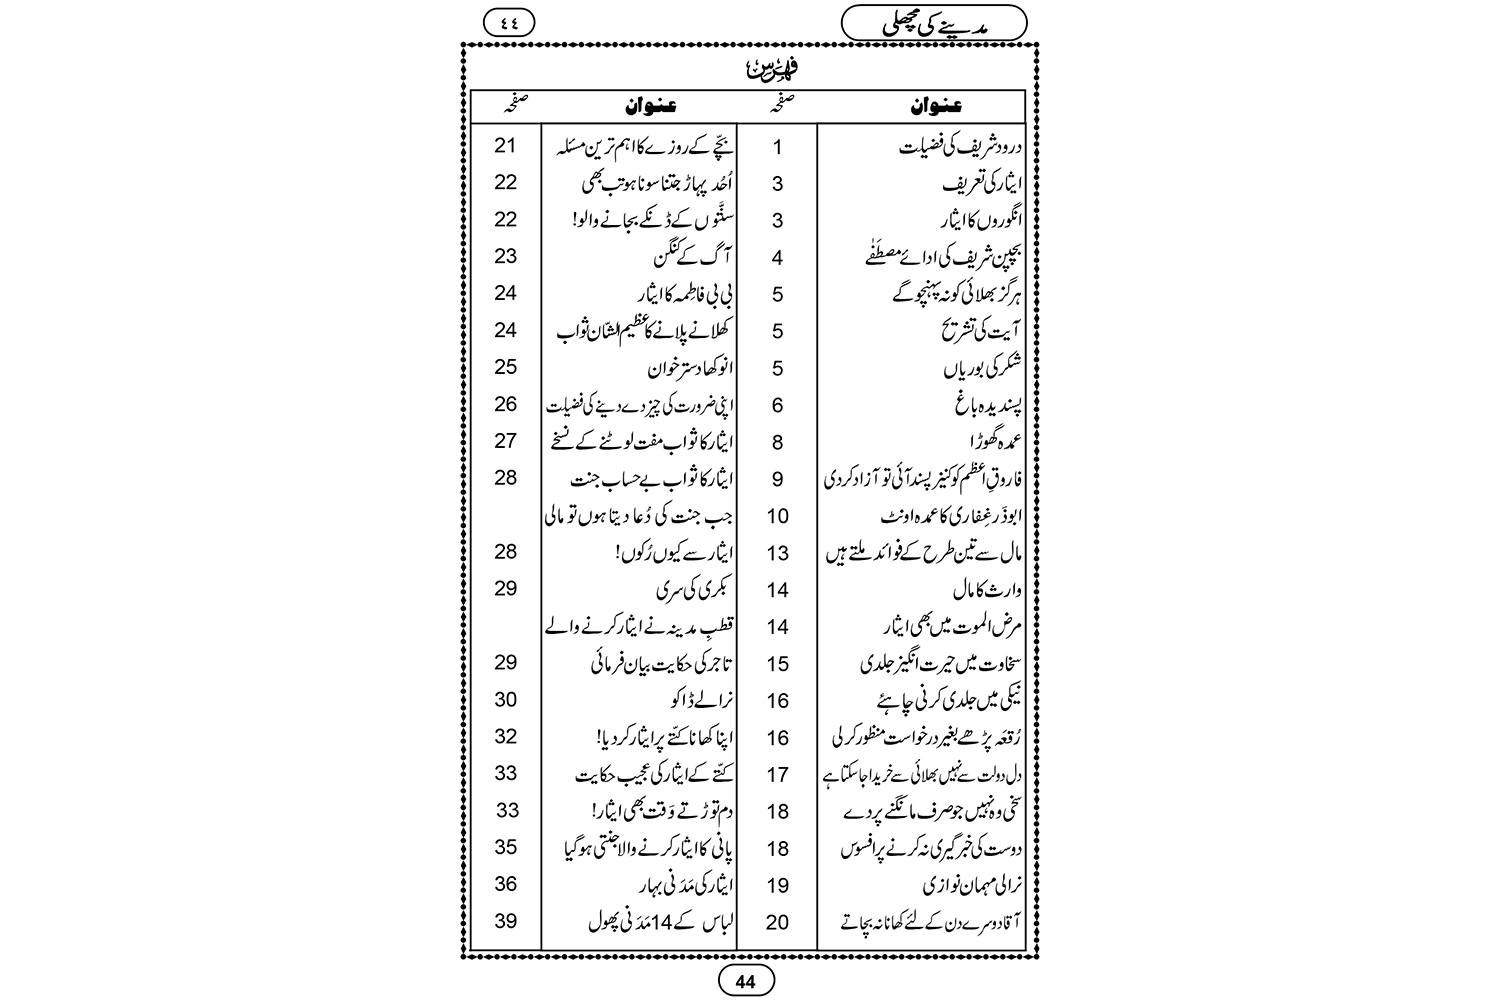 مدینے کی مچھلی
٤٤
فہرس
عنوان صفحہ عنوان صفحہ
درود شریف کی فضیلت 1
ایثار کی تعریف 3
انگوروں کا ایثار 3
بچپن شریف کی ادائے مصطَفٰے 4
ہرگز بھلائی کو نہ پہنچو گے 5
آیت کی تشریح 5
شکر کی بوریاں 5
پسندیدہ باغ 6
عمدہ گھوڑا 8
فاروقِ اعظم کو کنیز پسند آئی تو آزاد کر دی 9
ابوذَر غِفاری کا عمدہ اونٹ 10
مال سے تین طرح کے فوائد ملتے ہیں 13
وارث کا مال 14
مرض الموت میں بھی ایثار 14
سخاوت میں حیرت انگیز جلدی 15
نیکی میں جلدی کرنی چاہئے 16
رُقعَہ پڑھے بغیر درخواست منظور کر لی 16
دل دولت سے نہیں بھلائی سے خریدا جا سکتا ہے 17
سخی وہ نہیں جو صرف مانگنے پر دے 18
دوست کی خبر گیری نہ کرنے پر افسوس 18
نرالی مہمان نوازی 19
آقا دوسرے دن کے لئے کھانا نہ بچاتے 20
بچّے کے روزے کا اہم ترین مسئلہ 21
اُحُد پہاڑ جتنا سونا ہو تب بھی 22
سنَّتوں کے ڈنکے بجانے والو! 22
آگ کے کنگن 23
بی بی فاطِمہ کا ایثار 24
کھلانے پلانے کا عظیم الشّان ثواب 24
انوکھا دسترخوان 25
اپنی ضرورت کی چیز دے دینے کی فضیلت 26
ایثار کا ثواب مفت لوٹنے کے نسخے 27
ایثار کا ثواب بے حساب جنت 28
جب جنت کی دُعا دیتا ہوں تو مالی
ایثار سے کیوں رُکوں! 28
بکری کی سری 29
قطبِ مدینہ نے ایثار کرنے والے
تاجر کی حکایت بیان فرمائی 29
نرالے ڈاکو 30
اپنا کھانا کتّے پر ایثار کر دیا! 32
کتّے کے ایثار کی عجیب حکایت 33
دم توڑتے وَقت بھی ایثار! 33
پانی کا ایثار کرنے والا جنتی ہو گیا 35
ایثار کی مَدَنی بہار 36
لباس کے 14 مَدَنی پھول 39
44